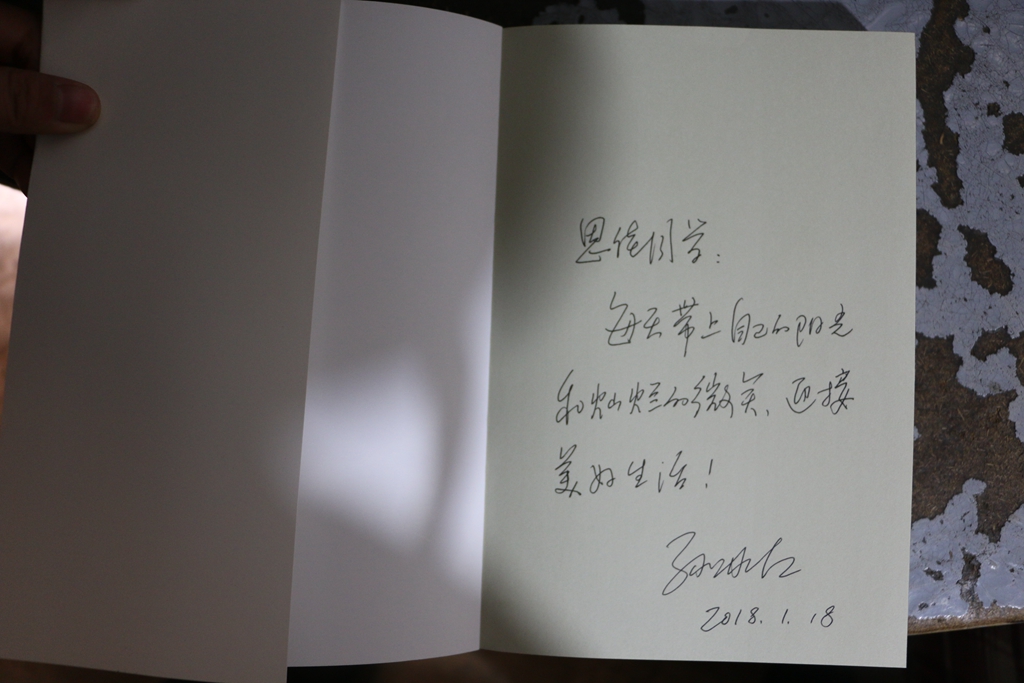 思佳同学：
每天带上自己的阳光
和灿烂的微笑、迎接
美好生活！
2018.1.18